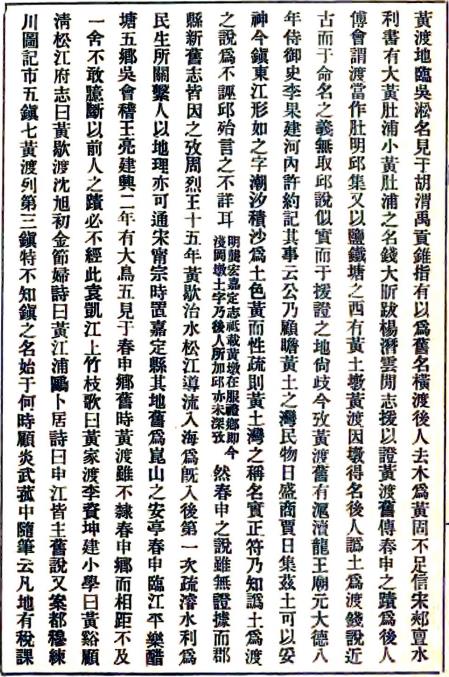 黃渡地臨吳淞名見于胡渭禹貢錐指有以爲舊名橫渡後人去木爲黃固不足信宋郟亶水
利書有大黃肚浦小黃肚浦之名錢大昕跋楊潛雲閒志援以證黃渡舊傳春申之蹟爲後人
傅會謂渡當作肚明邱集又以鹽鐵塘之西有黃土墩黃渡因墩得名後人譌土爲渡錢說近
古而于命名之義無取邱說似實而于援證之地尙歧今攷黃渡舊有滬瀆龍王廟元大德八
年侍御史李果建河內許約記其事云公乃顧瞻黃土之灣民物日盛商賈日集茲土可以妥
神今鎭東江形如之字潮汐積沙爲土色黃而性疏則黃土灣之稱名實正符乃知譌土爲渡
之說爲不誣邱殆言之不詳耳
明龔宏嘉定志祗載黃墩在服禮鄉卽今
淺岡墩土字乃後人所加邱亦未深攷
然春申之說雖無證據而郡
縣新舊志皆因之攷周烈王十五年黃歇治水松江導流入海爲旣入後第一次疏濬水利爲
民生所關繫人以地理亦可通宋甯宗時置嘉定縣其地舊爲崑山之安亭春申臨江平樂醋
塘五鄉吳會稽王亮建興二年有大鳥五見于春申鄉舊時黃渡雖不隸春申鄉而相距不及
一舍不敢臆斷以前人之蹟必不經此袁凱江上竹枝歌曰黃家渡李資坤建小學曰黃谿顧
淸松江府志曰黃歇渡沈旭初金節婦詩曰黃江浦鷗卜居詩曰申江皆主舊說又案都穆練
川圖記市五鎭七黃渡列第三鎭特不知鎭之名始于何時顧炎武菰中隨筆云凡地有稅課